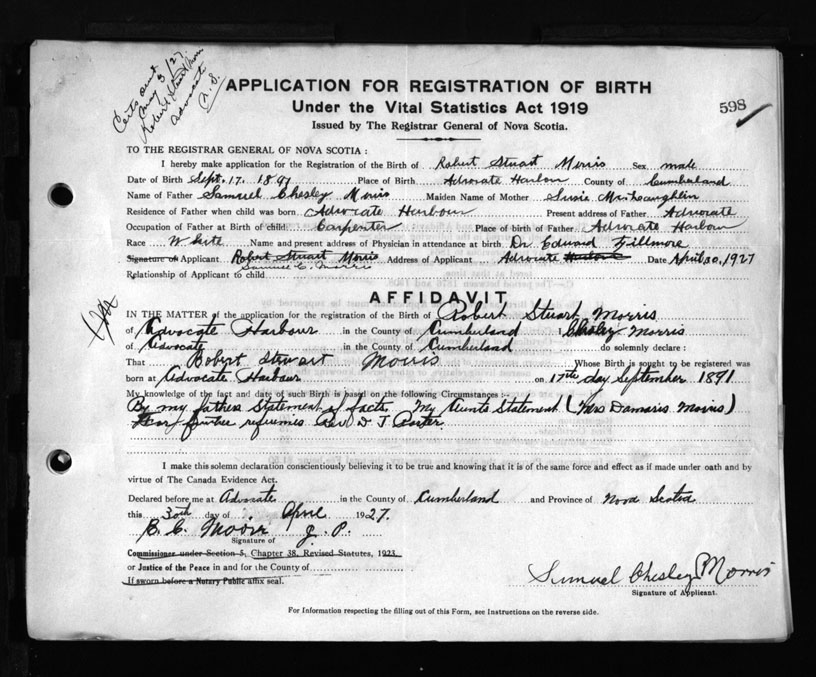 Certs sent
May 3/27
Robert Stuart Morris
Advocate
N.S.
APPLICATION FOR REGISTRATION OF BIRTH
Under the Vital Statistics Act 1919
Issued by The Registrar General of Nova Scotia.
598
TO THE REGISTRAR GENERAL OF NOVA SCOTIA :
I hereby make application for the Registration of the Birth of Robert Stuart Morris Sex male
Date of Birth Sept. 17. 1891 Place of Birth Advocate Harbour County of Cumberland
Name of Father Samuel Chesley Morris Maiden Name of Mother Susie McLaughlin
Residence of Father when child was born Advocate Harbour Present address of Father Advocate
Occupation of Father at Birth of child Carpenter Place of birth of Father Advocate Harbour
Race White Name and present address of Physician in attendance at birth Dr. Edward Fillmore
Signature of Applicant. Robert Stuart Morris Address of Applicant Advocate Harbour Date April 30, 1927
Samuel C. Morris
Relationship of Applicant to child
AFFIDAVIT
IN THE MATTER of the application for the registration of the Birth of Robert Stuart Morris
of Advocate Harbour in the County of Cumberland I Chesley Morris
of Advocate in the County of Cumberland do solemnly declare :
That Robert Stewart Morris Whose Birth is sought to be registered was
born at Advocate Harbour on 17th day September 1891
My knowledge of the fact and date of such Birth is based on the following Circumstances :—
By my fathers Statement of facts. My Aunts Statement (Mrs Damaris Morris)
For further refrences Rev. D J Porter.
I make this solemn declaration conscientiously believing it to be true and knowing that it is of the same force and effect as if made under oath and by
virtue of The Canada Evidence Act.
Declared before me at Advocate in the County of Cumberland and Province of Nova Scotia
this 30th day of April 1927.
B. C. Moore J. P.
Signature of
Commissioner under Section 5, Chapter 38, Revised Statutes, 1923
or Justice of the Peace in and for the County of
If sworn before a Notary Public affix seal.
Samuel Chesley Morris
Signature of Applicant.
For Information respecting the filling out of this Form, see Instructions on the reverse side.